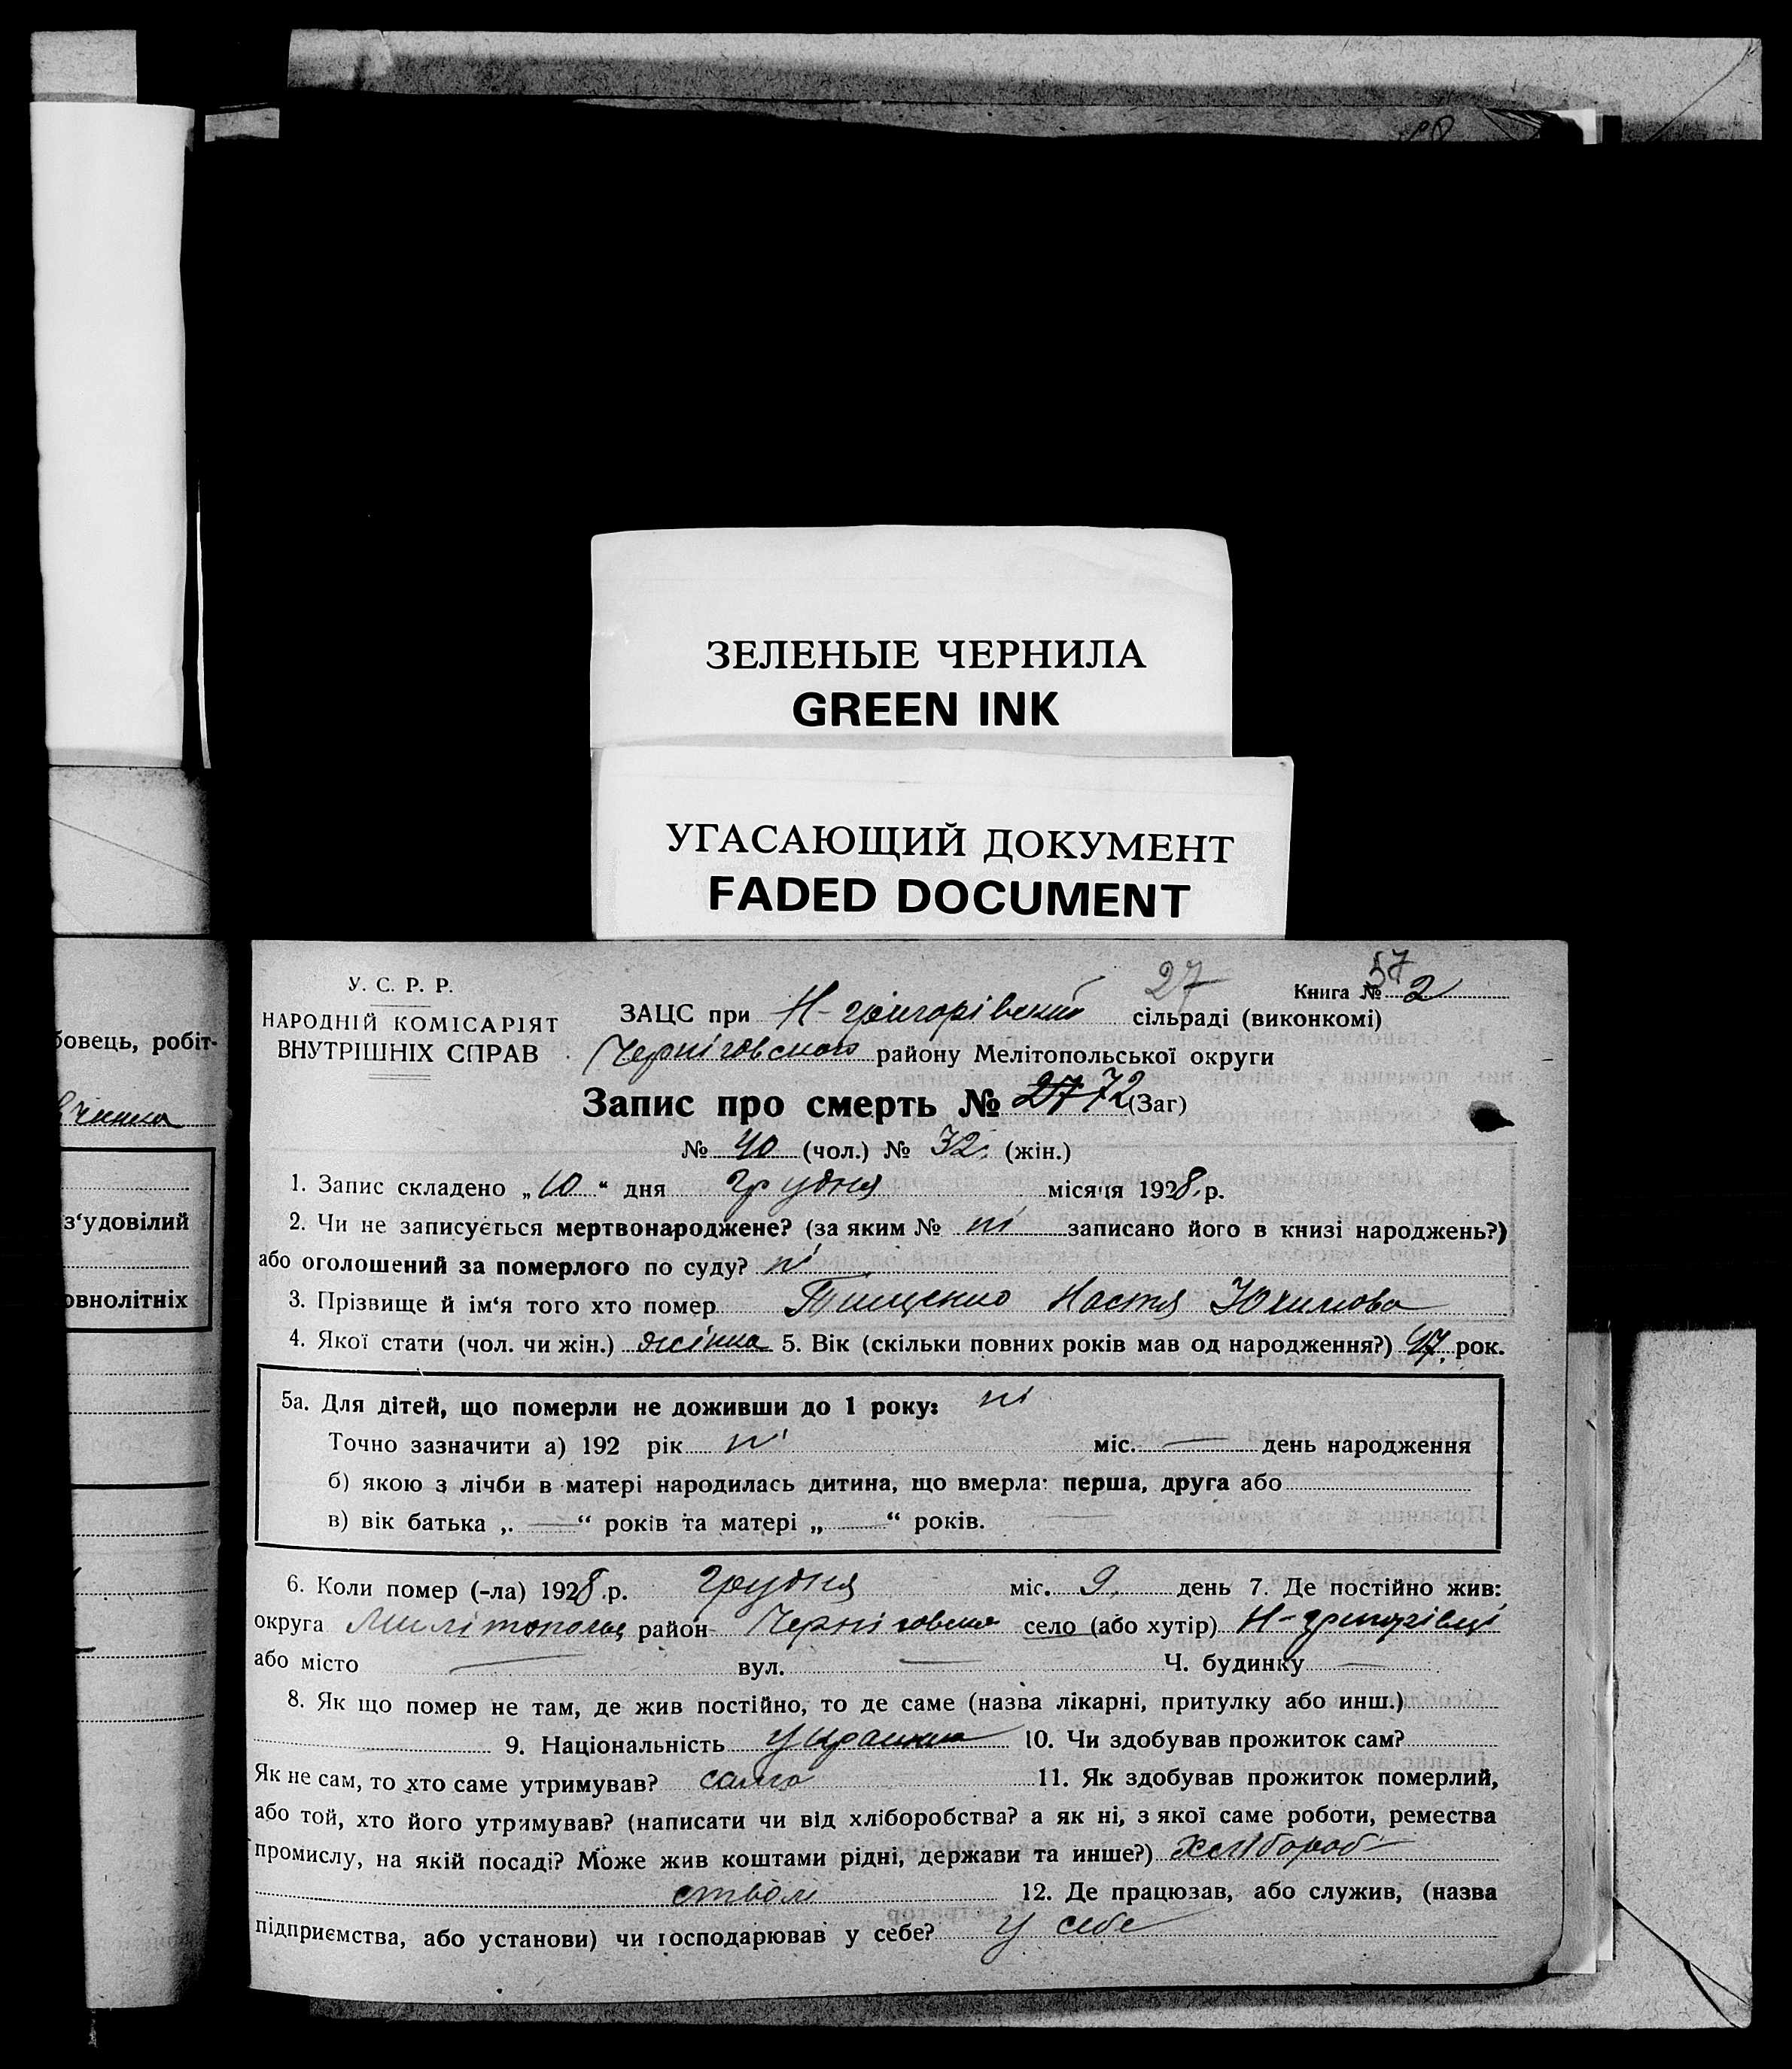 ЗЕЛЕНЫЕ ЧЕРНИЛА
GREEN INK
УГАСАЮЩИЙ ДОКУМЕНТ
FADED DOCUMENT
бовець, робіт-
з‘удовілий
овнолітніх
У. С. Р. Р.
НАРОДНІЙ КОМІСАРІЯТ
ВНУТРІШНІХ СПРАВ
27
57
Книга № 2
ЗАЦС при Н-григорівский сільраді (виконкомі)
Черніговского району Мелітопольської округи
Запис про смерть № 27 72 (Заг)
№ 40 (чол.) № 32. (жін.)
1. Запис складено „10“ дня грудня місяця 1928 р.
2. Чи не записується мертвонароджене? (за яким № ні записано його в книзі народжень?)
або оголошений за померлого по суду? ні
3. Прізвище й ім‘я того хто помер Тищенко Настя Юхимова
4. Якої стати (чол. чи жін.) жінка 5. Вік (скільки повних років мав од народження?) 47. рок.
5а. Для дітей, що померли не доживши до 1 року: ні
Точно зазначити а) 192 рік ні міс. — день народження
б) якою з лічби в матері народилась дитина, що вмерла: перша, друга або
в) вік батька „ — “ років та матері „ — “ років.
6. Коли помер (-ла) 1928 р. грудня міс. 9. день 7. Де постійно жив:
округа Милітополь район Черніговский село (або хутір) Н-григорівці
або місто — вул. — Ч. будинку —
8. Як що помер не там, де жив постійно, то де саме (назва лікарні, притулку або инш.)
9. Національність украинка 10. Чи здобував прожиток сам?
Як не сам, то хто саме утримував? сама 11. Як здобував прожиток померлий,
або той, хто його утримував? (написати чи від хліборобства? а як ні, з якої саме роботи, ремества
промислу, на якій посаді? Може жив коштами рідні, держави та инше?) хлібороб-
ством 12. Де працював, або служив, (назва
підприємства, або установи) чи господарював у себе? у себе